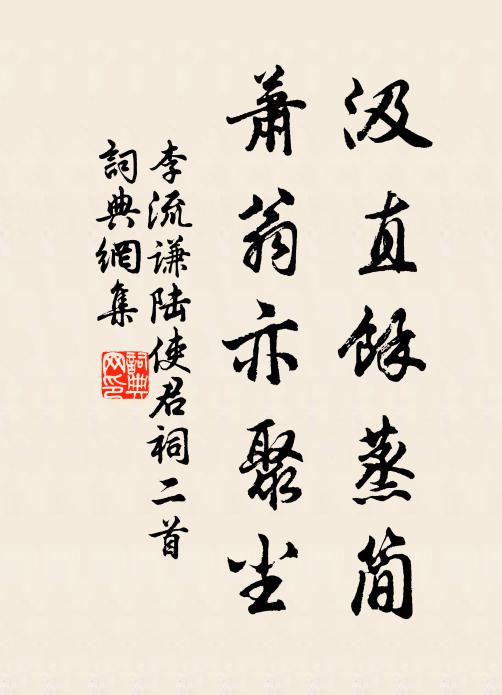 汲直餘蒸简
萧翁亦聚尘
李流谦陆使君祠二首
詞典網集
詞典網印